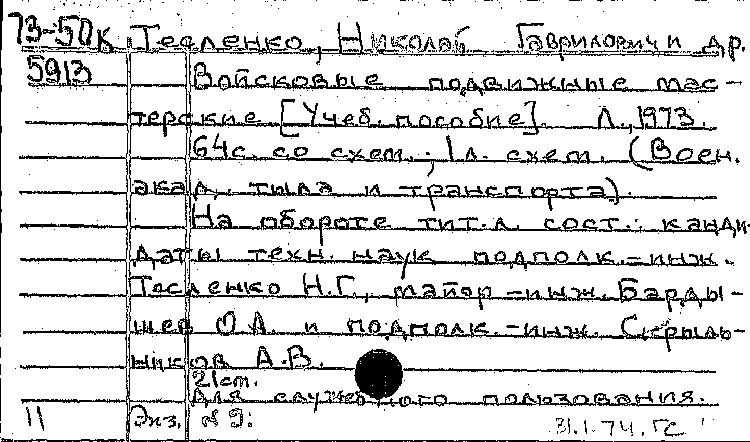 73-50к Тесленко, Николай Гаврилович и др.
5913 Войсковые подвижные мас-
терские [Учеб. пособие]. Л., 1973.
64с. со схем.; 1л. схем. (Воен.
акад. тыла и транспорта).
На обороте тит.л. сост.: канди-
даты техн. наук подполк.-инж.
Тесленко Н.Г., майор-инж. Барды-
шев О.А. и подполк.-инж. Скрыль-
ников А.В.
21см.
Для служебного пользования.
11 Экз. №9:
31.1.74. ГС